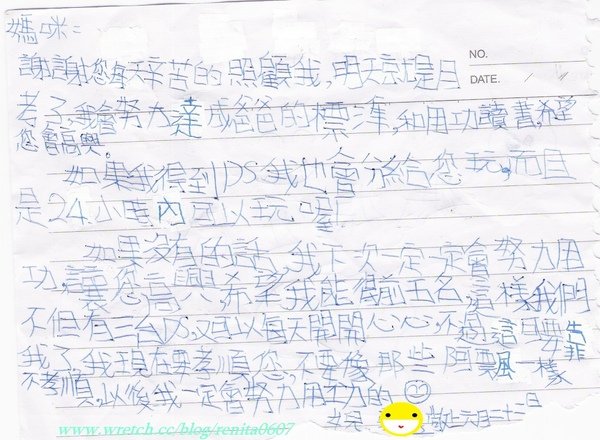 媽咪:
NO.
謝謝您每天辛苦的照顧我,明天就是月
DATE. / /
考了,我會努力達成爸爸的標準,和用功讀書,希望
您會高興。
如果我得到DS我也會分給您玩,而且
是24小時內可以玩喔!
如果沒有的話,我下次一定一定會努力用
功,讓您高興,希望我能得前五名,這樣我們
不但有三台DS,又可以每天開開心心,不過這只要
我了我現在要孝順您,不要像那些阿飄一樣
不孝順,以後我一定會努力用功的
敬上六月二十二日
www.wretch.cc/blog/renita0607